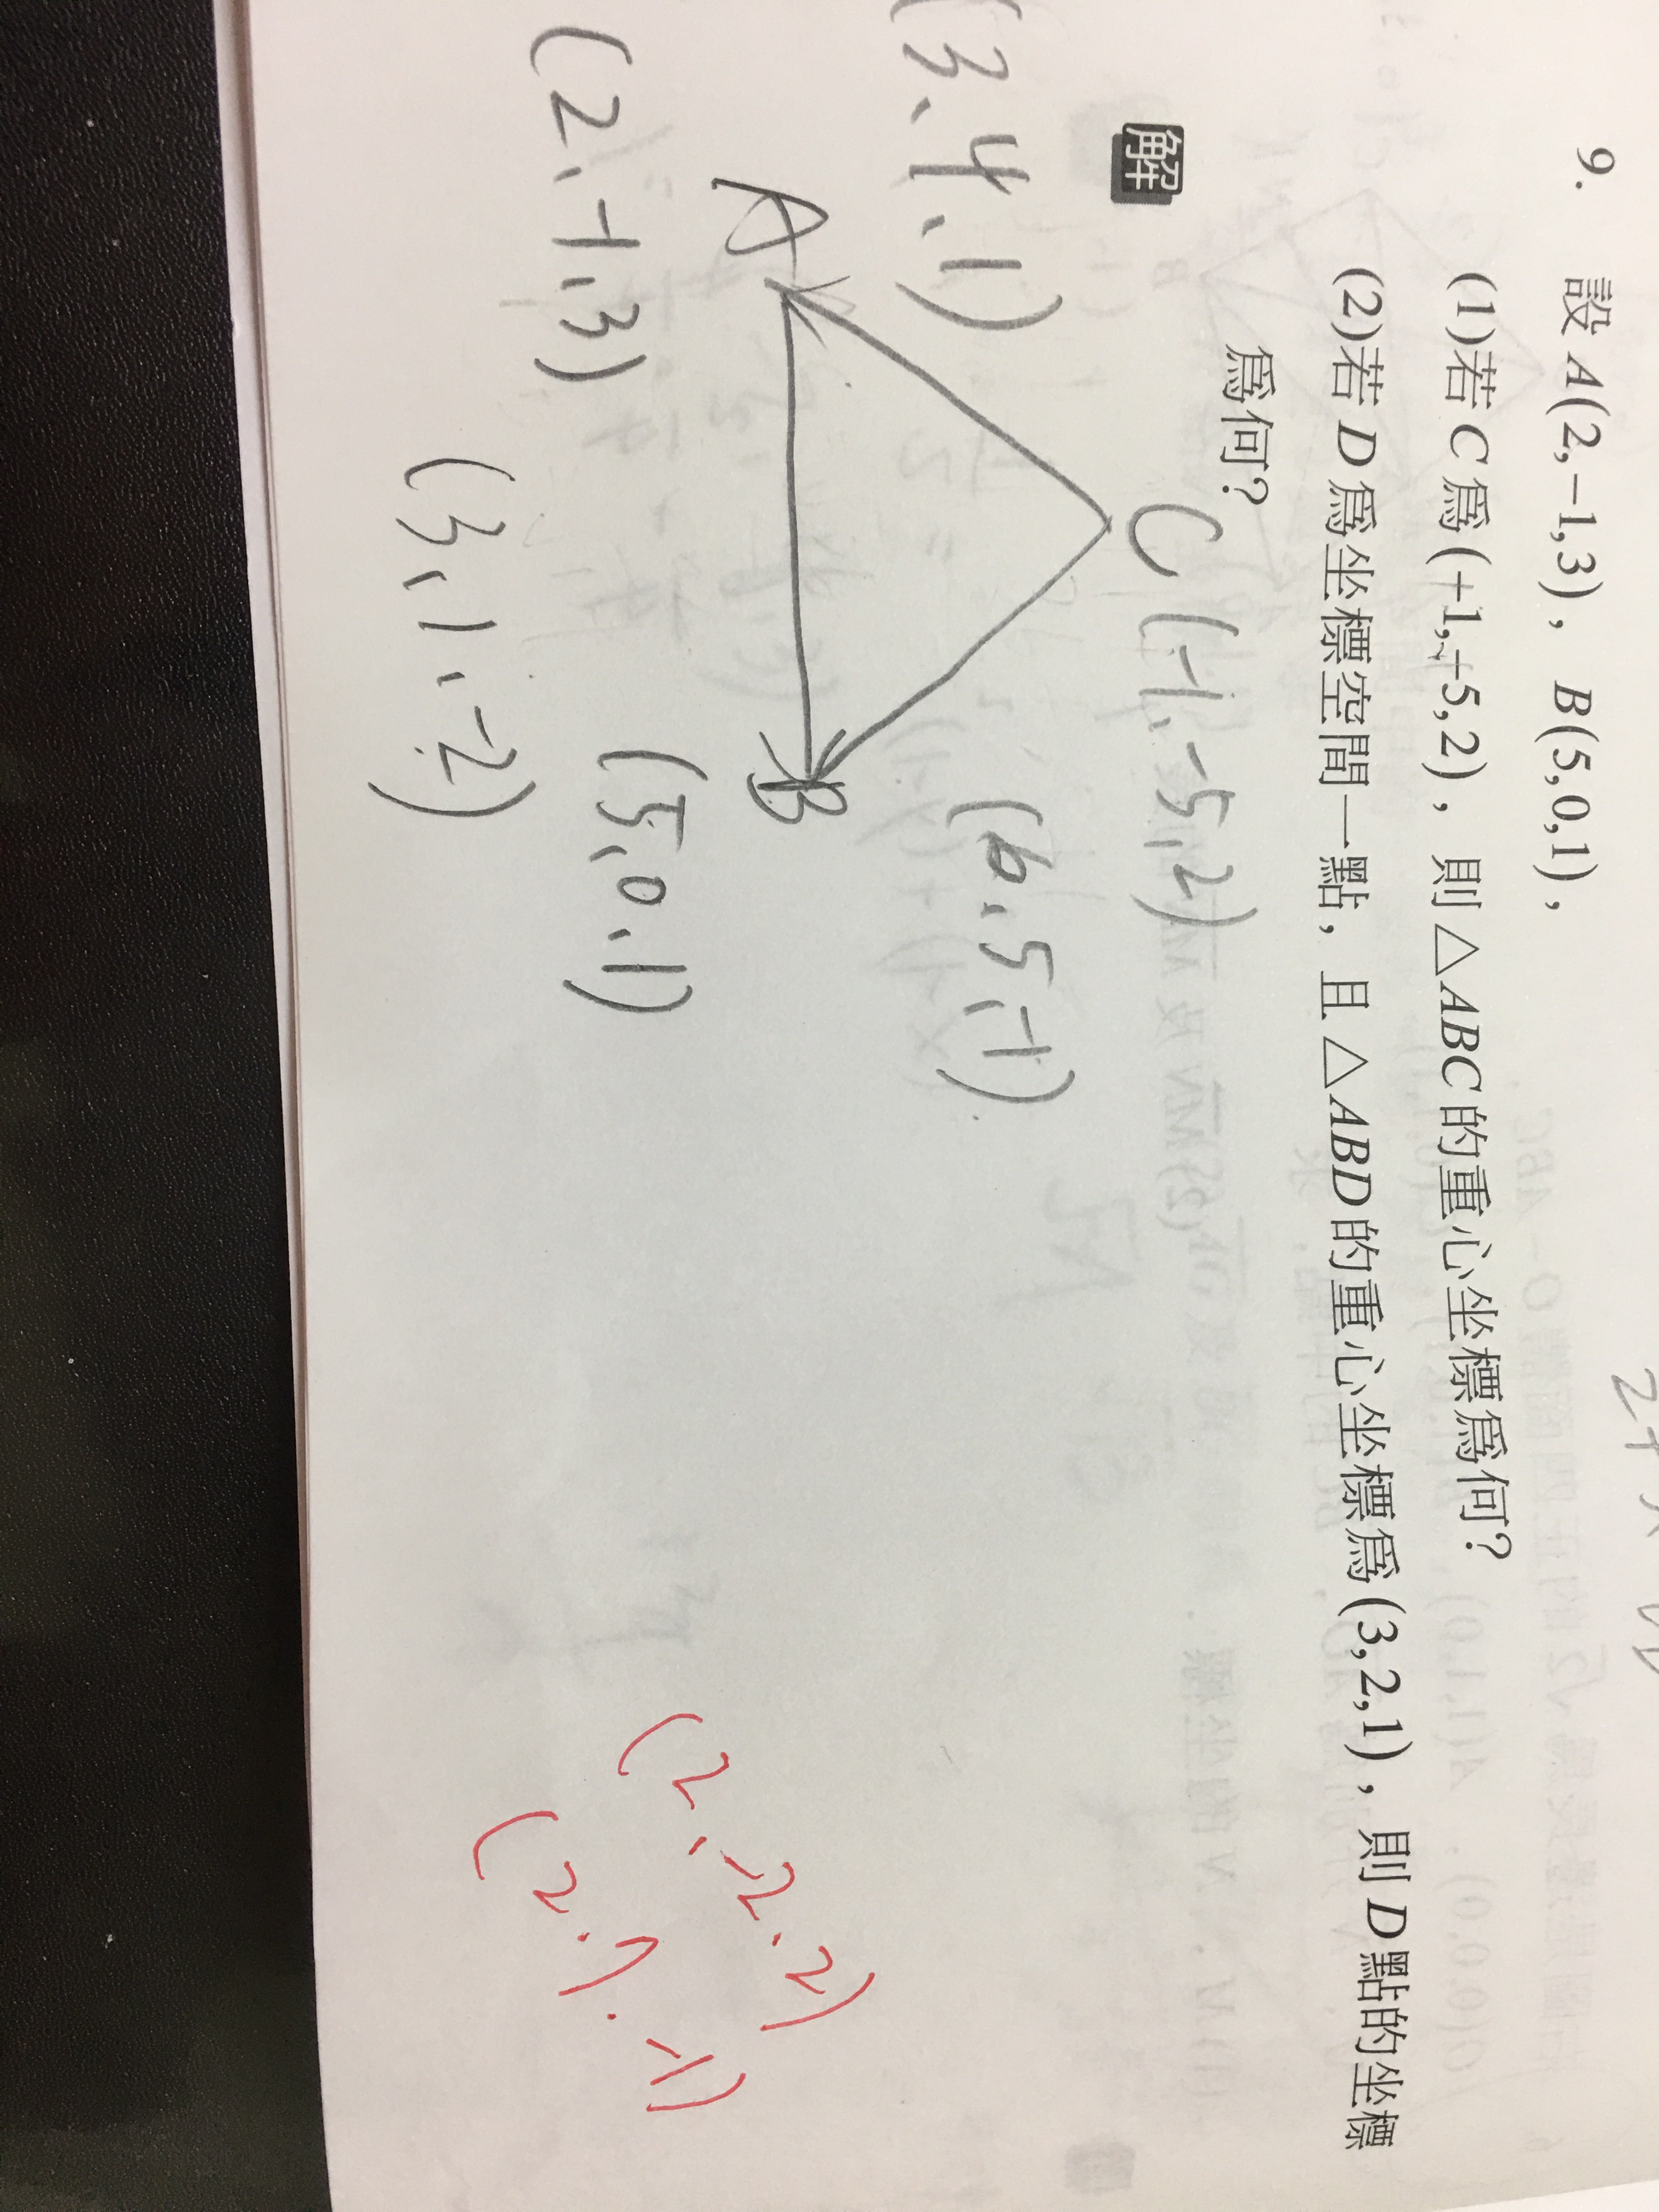 9. 設 A(2,−1,3)，B(5,0,1)，
(1)若 C 爲 (+1,+5,2)，則△ABC 的重心坐標爲何?
(2)若 D 爲坐標空間一點，且△ABD 的重心坐標爲 (3,2,1)，則 D 點的坐標
爲何?
解
C (-1,-5,2)
(3,4,1)
(6,5,-1)
A
B
(2,-1,3)
(5,0,1)
(3,1,-2)
(2,-2,2)
(2,7,-1)